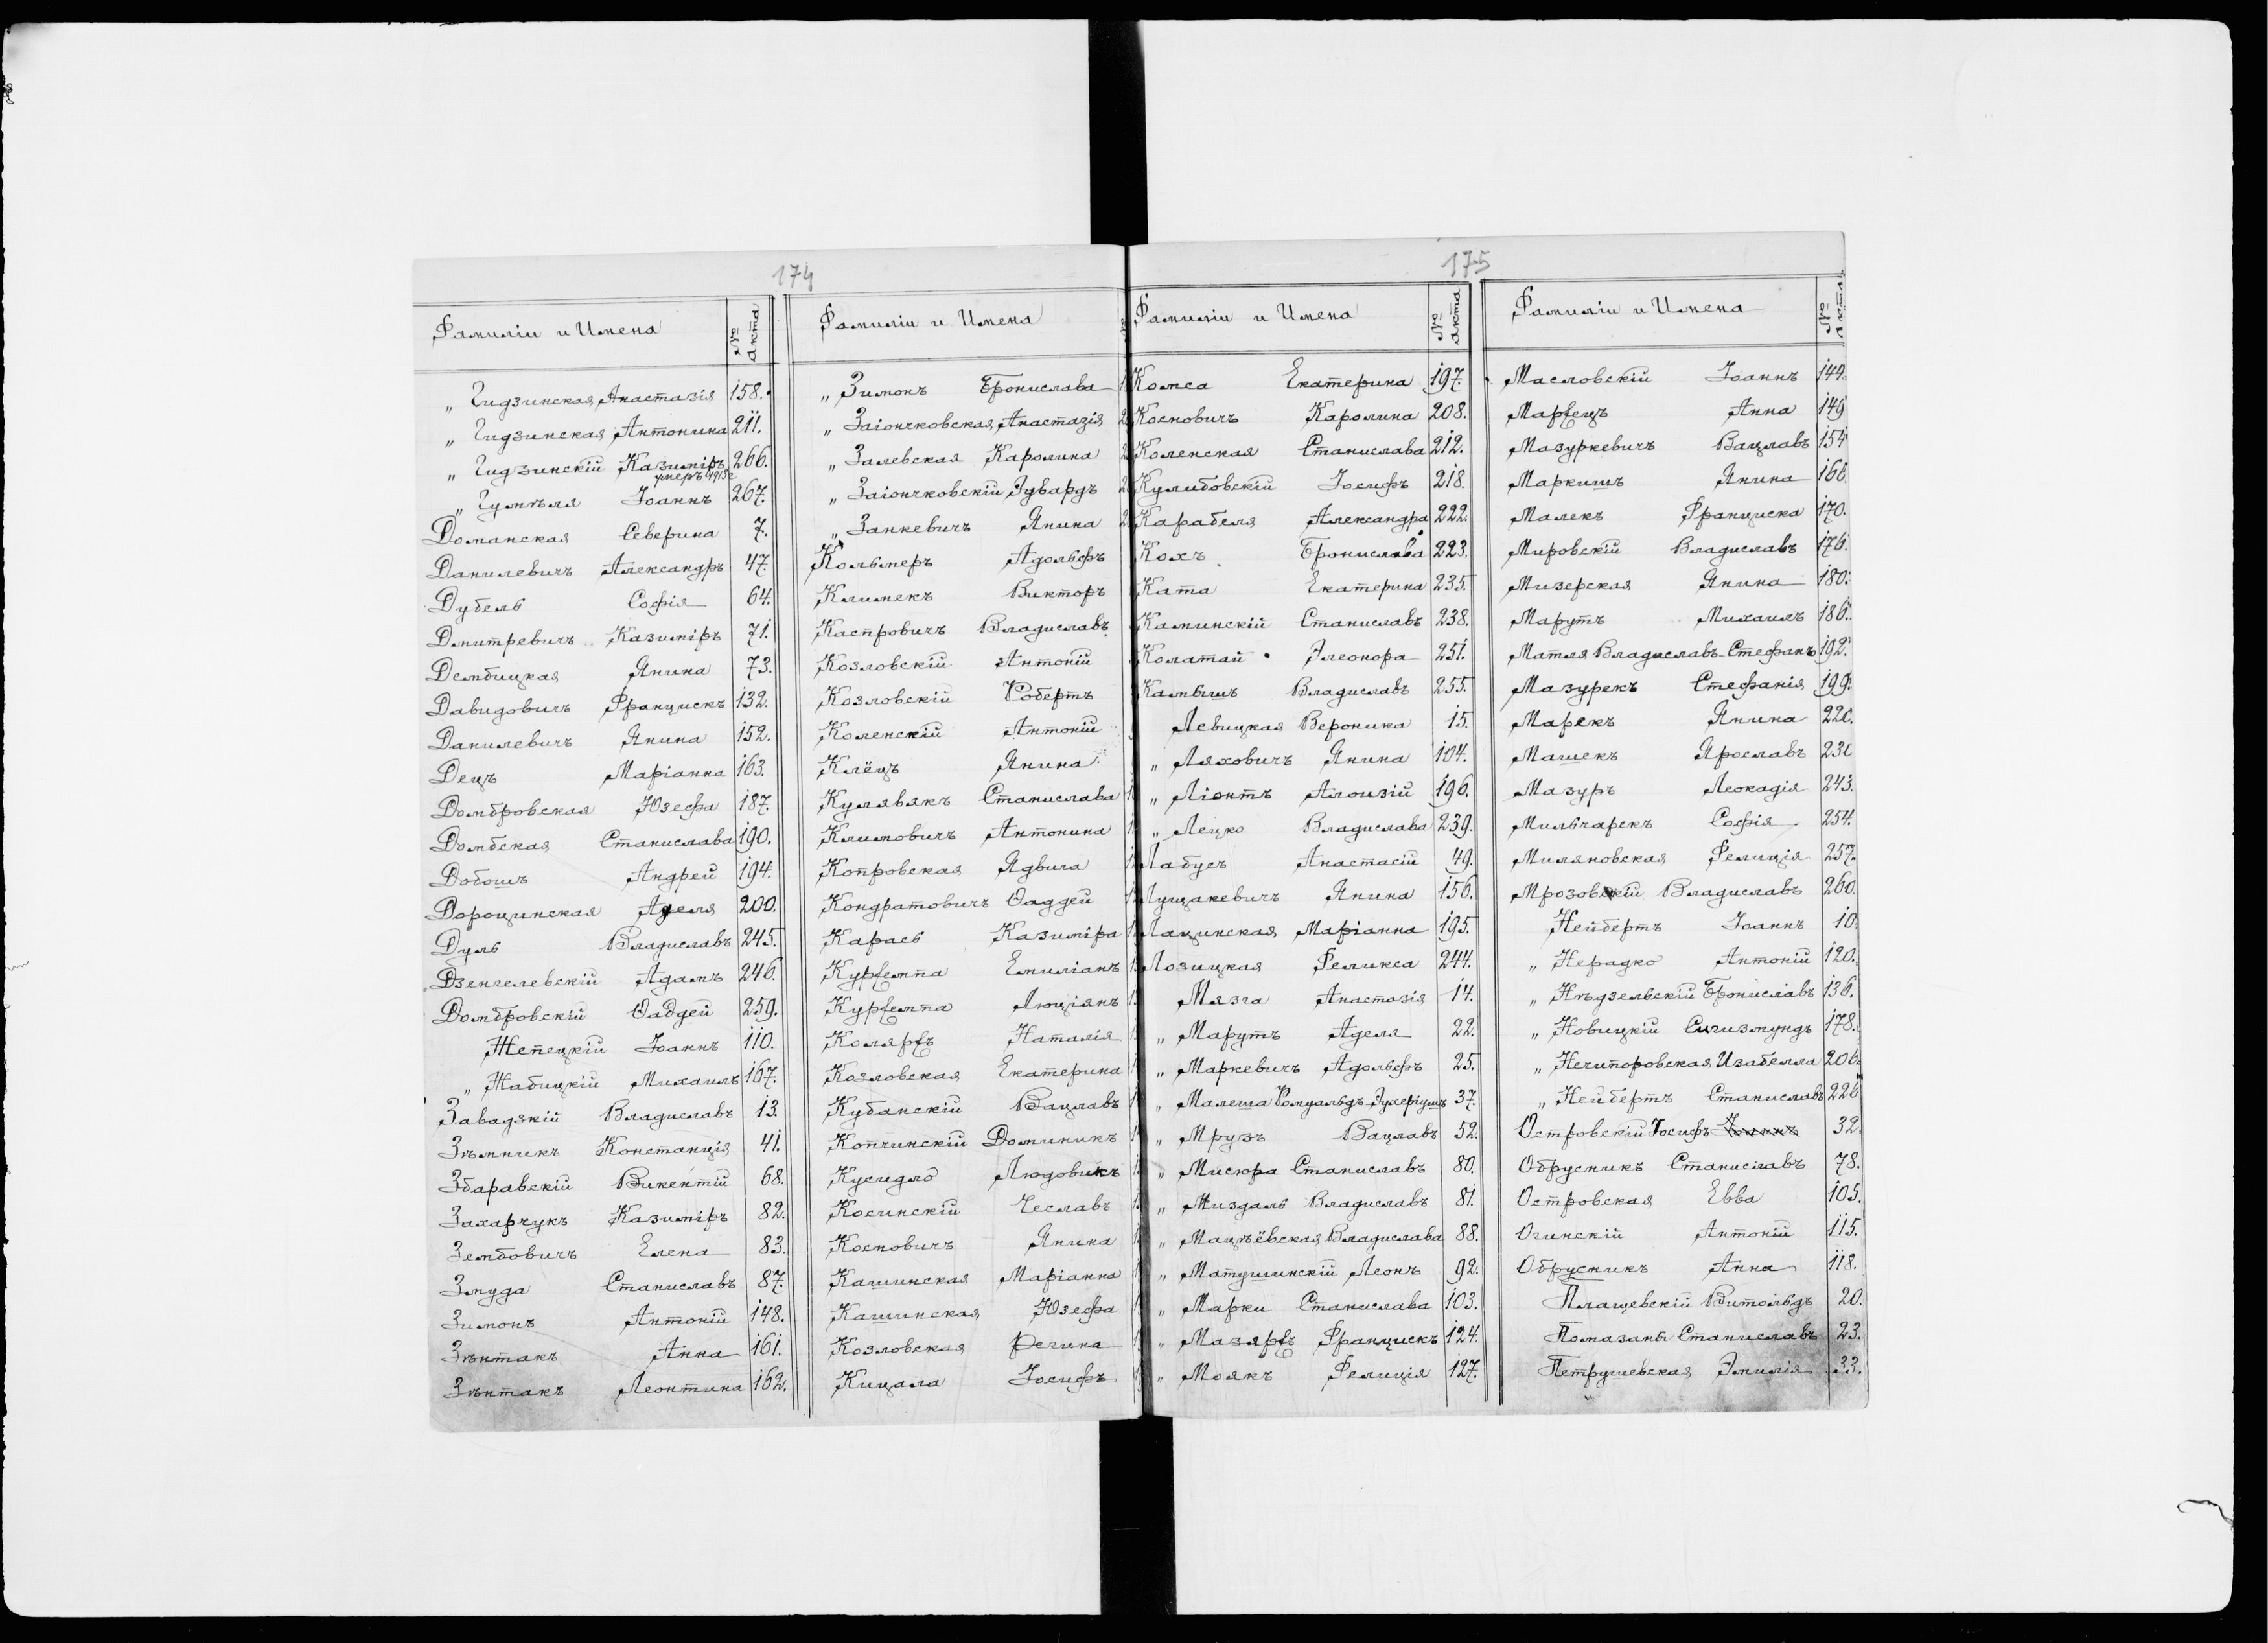 174
Фамиліи и Имена № акта
„ Гидзинская Анастазія 158.
„ Гидзинская Антонина 211.
„ Гидзинскій Казиміръ 266.
умеръ 1915г
„ Гумѣля Іоаннъ 267.
Доманская Северина 7.
Данилевичъ Александръ 47.
Дубель Софія 64.
Дмитревичъ Казиміръ 71.
Дембицкая Янина 73.
Давидовичъ Францискъ 132.
Данилевичъ Янина 152.
Децъ Маріанна 163.
Домбровская Юзефа 187.
Домбская Станислава 190.
Добошъ Андрей 194.
Дорощинская Аделя 200.
Дуль Владиславъ 245.
Дзенгелевскій Адамъ 246.
Домбровскій Ѳаддей 259.
Жепецкій Іоаннъ 110.
„ Жабицкій Михаилъ 167.
Завадзкій Владиславъ 13.
Зѣмникъ Констанція 41.
Збаравскій Викентій 68.
Захарчукъ Казиміръ 82.
Зембовичъ Елена 83.
Змуда Станиславъ 87.
Зимонъ Антоній 148.
Зѣнтакъ Анна 161.
Зѣнтакъ Леонтина 162.
Фамиліи и Имена
„ Зимонъ Бронислава
„ Заіончковская Анастазія
„ Залевская Каролина
„ Заіончковскій Эдвардъ
„ Занкевичъ Янина
Кольмеръ Адольфъ
Климекъ Викторъ
Кастровичъ Владиславъ
Козловскій Антоній
Козловскій Робертъ
Коленскій Антоній
Клёцъ Янина
Кулявякъ Станислава
Климовичъ Антонина
Копровская Ядвига
Кондратовичъ Ѳаддей
Карась Казиміра
Емиліанъ
Люціянъ
Наталія
Козловская Екатерина
Кубанскій Вацлавъ
Копчинскій Доминикъ
Кусидло Людовикъ
Косинскій Чеславъ
Косновичъ Янина
Кашинская Маріанна
Кашинская Юзефа
Козловская Регина
Кицала Іосифъ
175
Фамиліи и Имена № акта
Комса Екатерина 197.
Косновичъ Каролина 208.
Коленская Станислава 212.
Кулибовскій Іосифъ 218.
Карабеля Александра 222.
Кохъ Бронислава 223.
Ката Екатерина 235.
Каминскій Станиславъ 238.
Колатай Элеонора 251.
Камышъ Владиславъ 255.
Левицкая Вероника 15.
„ Ляховичъ Янина 104.
„ Ліонтъ Алоизій 196.
„ Лецко Владислава 239.
Лабусъ Анастасій 49.
Лущакевичъ Янина 156.
Лащинская Маріанна 195.
Лозицкая Феликса 244.
Мязга Анастазія 14.
„ Марутъ Аделя 22.
„ Маркевичъ Адольфъ 25.
„ Малеша Ромуальдъ 37.
„ Мрузъ Вацлавъ 52.
„ Мисюра Станиславъ 80.
„ Миздаль Владиславъ 81.
„ Мацѣёвская Владислава 88.
„ Матушинскій Леонъ 92.
„ Марки Станислава 103.
„ Францискъ 124.
„ Моякъ Фелиція 127.
Фамиліи и Имена № акта
Масловскій Іоаннъ 144.
Анна 149
Мазуркевичъ Вацлавъ 154
Маркишъ Янина 166.
Малекъ Франциска 170.
Мировскій Владиславъ 176.
Мизерская Янина 180.
Марутъ Михаилъ 186.
Матля Владиславъ-Стефанъ 192.
Мазурекъ Стефанія 199.
Марекъ Янина 220.
Машекъ Ярославъ 230
Мазуръ Леокадія 243.
Мильчарекъ Софія 254.
Миляновская Фелиція 257.
Мрозовскій Владиславъ 260.
Нейбертъ Іоаннъ 10.
„ Нерадко Антоній 120.
„ Нѣдзельскій Брониславъ 136.
„ Новицкій Сигизмундъ 178.
„ Нечипоровская Изабелла 206.
„ Нейбертъ Станиславъ 226
Островскій Іосифъ 32.
Обрусникъ Станиславъ 78.
Островская Евва 105.
Огинскій Антоній 115.
Обрусникъ Анна 118.
Плащевскій Витольдъ 20.
Помазань Станиславъ 23.
Петрушевская Эмилія 33.